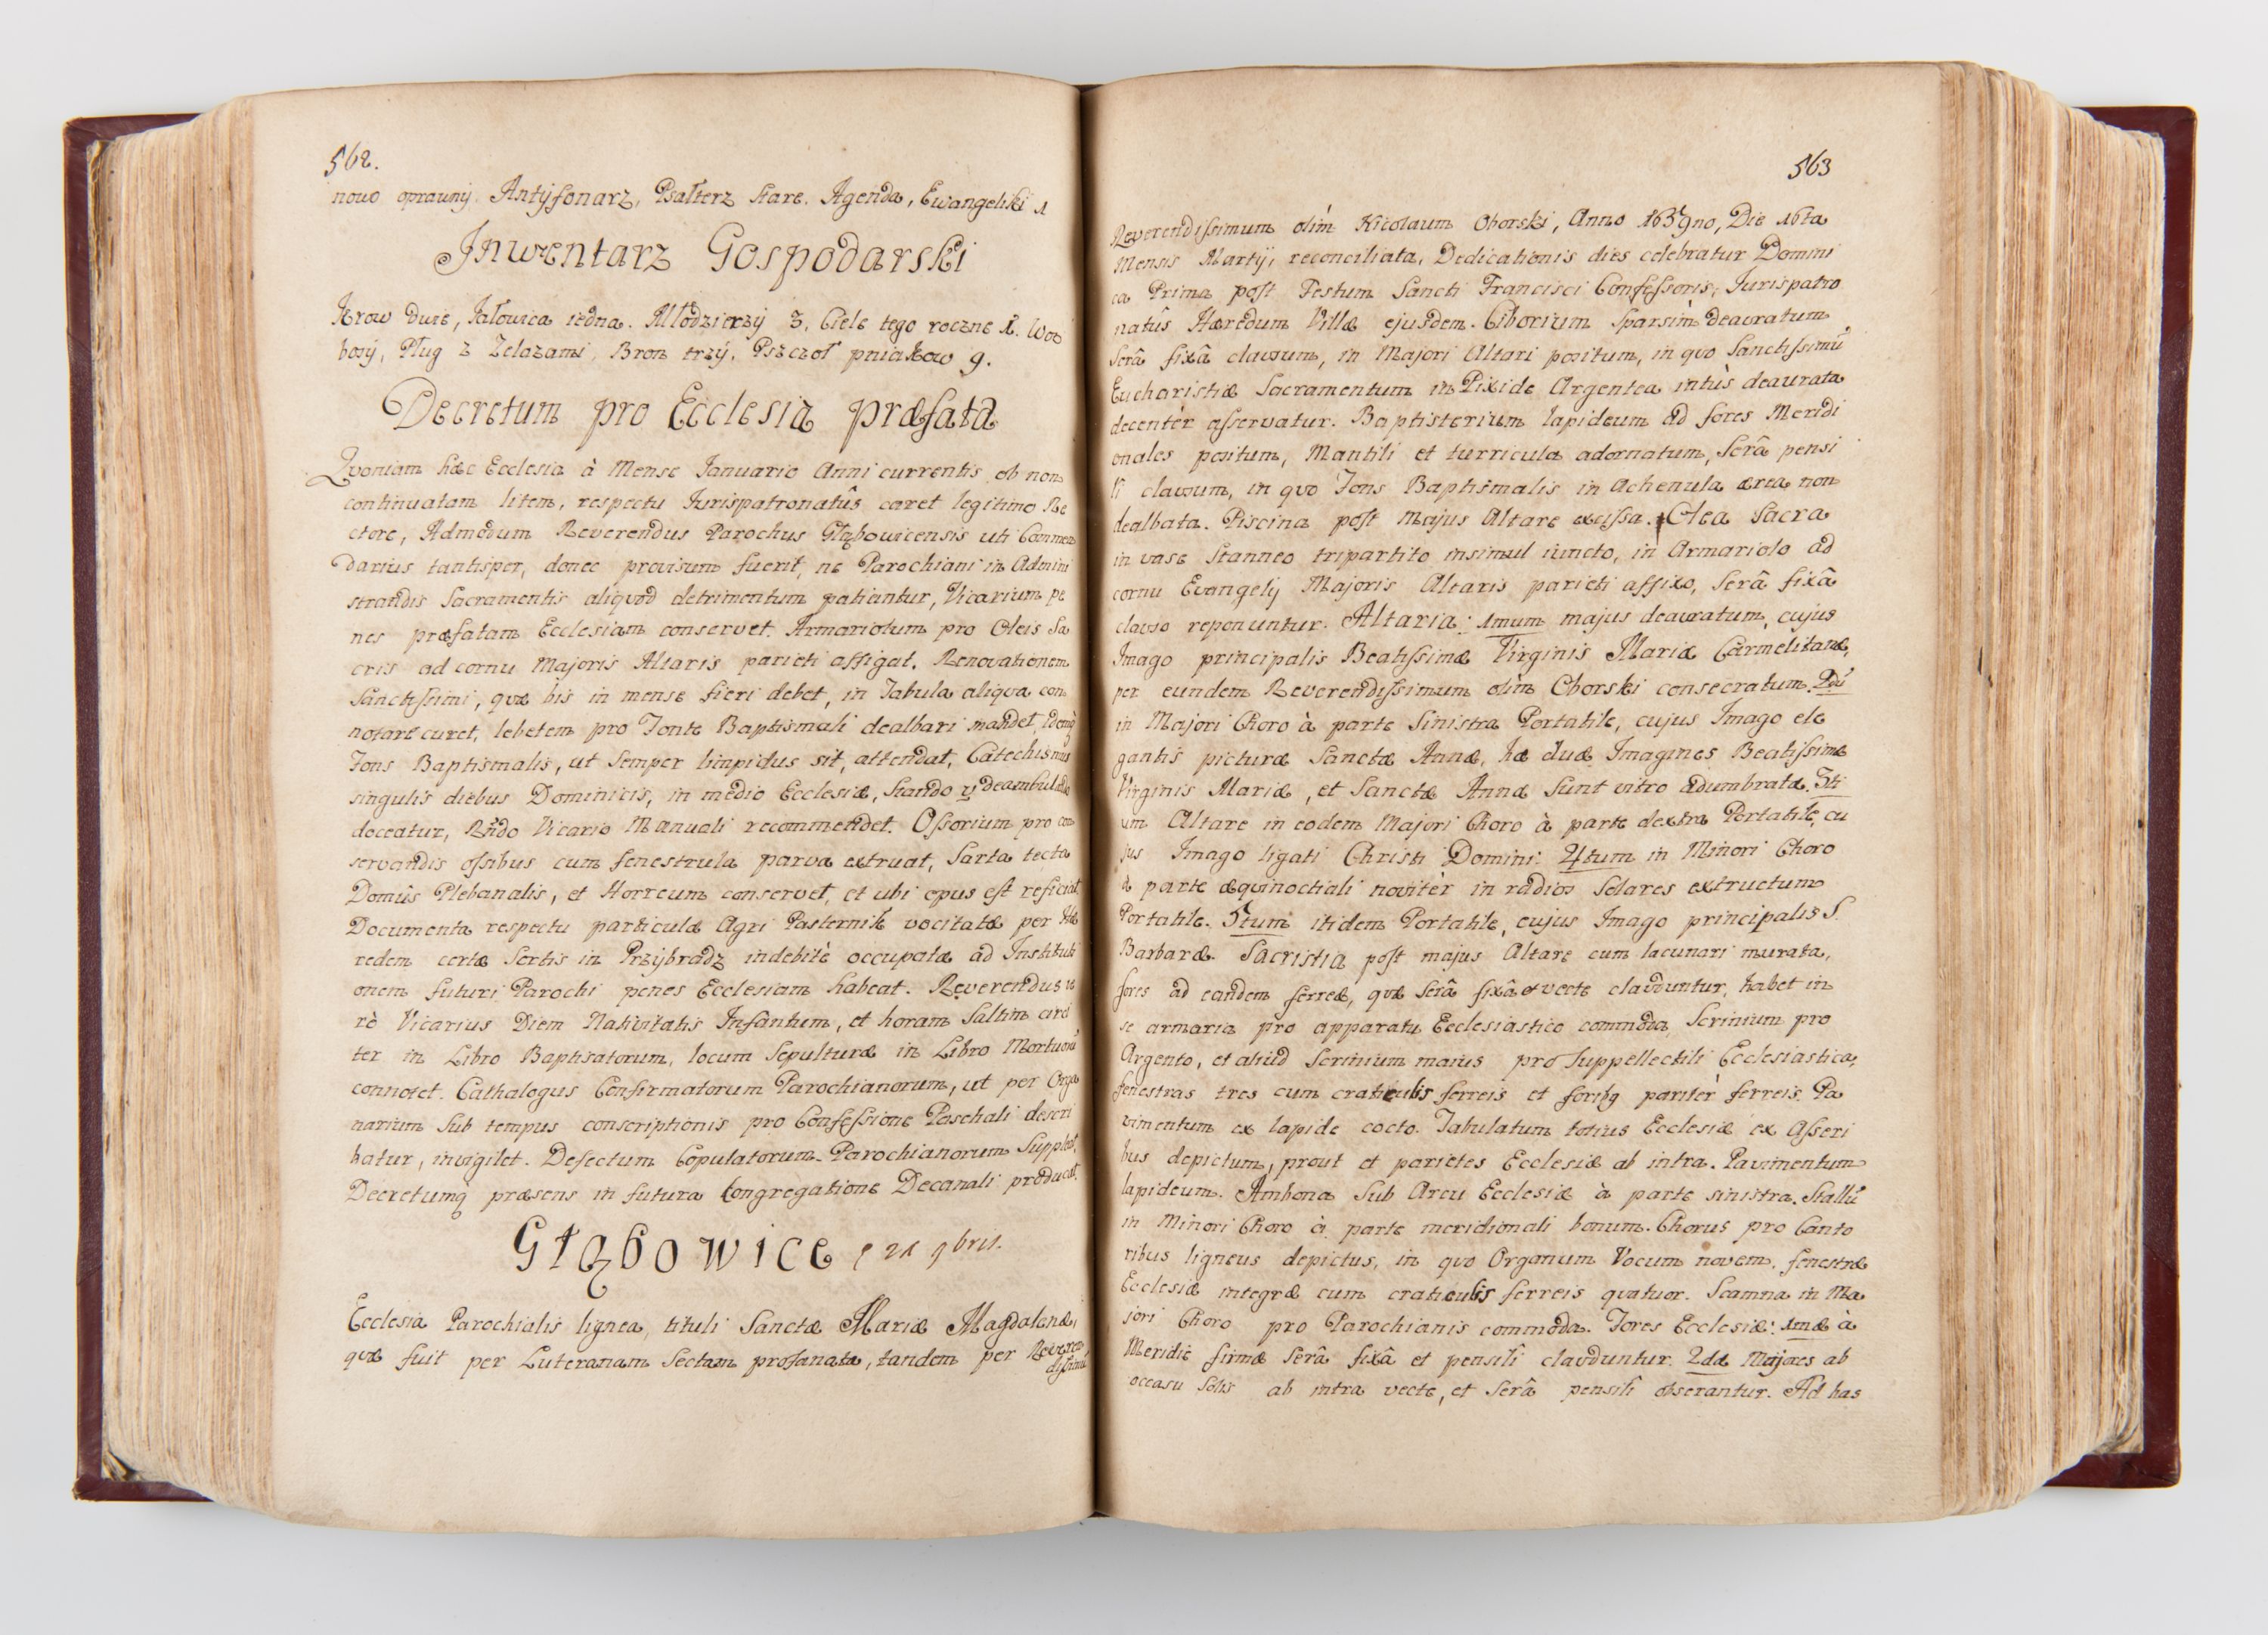 562.
nowo oprawny. Antyfonarz, Psałterz stare. Agenda, Ewangeliki 1
Inwentarz Gospodarski
Krow dwie, Jałowica iedna. Młodzierzy 3. Ciele tego roczne 1. Woz
bosy, Pług z Zelazami, Bron trzy. Pszczoł pniakow 9.
Decretum pro Ecclesia præfata
Qvoniam hæc Ecclesia à Mense Januario Anni currentis ob non
continuatam litem, respectu Jurispatronatûs caret legitimo Re
ctore, Admodum Reverendus Parochus Głąbowicensis uti Commen
darius tantisper, donec provisum fuerit, ne Parochiani in Admini
strandis Sacramentis aliqvod detrimentum patiantur, Vicarium pe
nes præfatam Ecclesiam conservet. Armariolum pro Oleis Sa
cris ad cornu Majoris Altaris parieti affigat. Renovationem
Sanctissimi, qvæ bis in mense fieri debet, in Tabula aliqva con
notare curet, lebetem pro Fonte Baptismali dealbari mandet,
Fons Baptismalis, ut semper limpidus sit, attendat, Catechismus
singulis diebus Dominicis, in medio Ecclesiæ, stando deambulando
doceatur, Rndo Vicario Manuali recommendet. Ossorium pro con
servandis ossibus cum fenestrula parva extruat, Sarta tecta
Domûs Plebanalis, et Horreum conservet, et ubi opus est reficiat
Documenta respectu particulæ Agri Pasternik vocitatæ per Hæ
redem certæ Sortis in Przybradz indebitè occupatæ ad Instituti
onem futuri Parochi penes Ecclesiam habeat. Reverendus ve
rò Vicarius Diem Nativitatis Infantum, et horam Saltim circi
ter in Libro Baptisatorum, locum Sepulturæ in Libro Mortuorũ
connotet. Cathalogus Confirmatorum Parochianorum, ut per Orga
narium Sub tempus conscriptionis pro Confessione Paschali descri
batur, invigilet. Defectum Copulatorum Parochianorum Suppleat,
Decretumq præsens in futura Congregatione Decanali producat.
Głąbowice 21 9bris.
Ecclesia Parochialis lignea, tituli Sanctæ Mariæ Magdalenæ,
qvæ fuit per Luteranam Sectam profanata, tandem per Reveren
dissimũ
563
Reverendissimum olim Nicolaum Oborski, Anno 1639no, Die 16ta
Mensis Martij, reconciliata, Dedicationis dies celebratur Domini
ca Prima post Festum Sancti Francisci Confessoris; Jurispatro
natûs Hæredum Villæ ejusdem. Ciborium Sparsim deauratum
Serâ fixâ clausum, in Majori Altari positum, in qvo Sanctissimũ
Eucharistiæ Sacramentum in Pixide Argentea intùs deaurata
decentèr asservatur. Baptisterium lapideum ad fores Meridi
onales positum, Mantili et turricula adornatum, Serâ pensi
li clausum, in qvo Fons Baptismalis in Achenula ærea non
dealbata. Piscina post Majus Altare excissa. Olea Sacra
in vase Stanneo tripartito insimul iuncto, in Armariolo ad
cornu Evangelij Majoris Altaris parieti affixo, Serâ fixâ
clauso reponuntur. Altaria: 1mum majus deauratum, cujus
Imago principalis Beatissimæ Virginis Mariæ Carmelitanæ,
per eundem Reverendissimum olim Oborski consecratum. 2dũ
in Majori Choro à parte Sinistra Portatile, cujus Imago ele
gantis picturæ Sanctæ Annæ, hæ duæ Imagines Beatissimæ
Virginis Mariæ, et Sanctæ Annæ Sunt vitro adumbratæ. 3ti
um Altare in eodem Majori Choro à parte dextra Portatile, cu
jus Imago ligati Christi Domini: 4tum in Minori Choro
à parte æquinoctiali novitèr in radios Solares extructum
Portatile. 5tum itidem Portatile, cujus Imago principalis S.
Barbaræ. Sacristia post majus Altare cum lacunari murata,
fores ad eandem ferreæ, qvæ Serâ fixâ et vecte clauduntur, habet in
se armaria pro apparatu Ecclesiastico commoda, Scrinium pro
Argento, et aliud Scrinium maius pro Suppellectili Ecclesiastica,
fenestras tres cum craticulis ferreis et foribq paritèr ferreis. Pa
vimentum ex lapide cocto. Tabulatum totius Ecclesiæ ex Asseri
bus depictum, prout et parietes Ecclesiæ ab intra. Pavimentum
lapideum. Ambona Sub Arcu Ecclesiæ à parte sinistra. Stallũ
in Minori Choro à parte meridionali bonum. Chorus pro Canto
ribus ligneus depictus, in qvo Organum Vocum novem. fenestræ
Ecclesiæ integræ cum craticulis ferreis qvatuor. Scamna in Ma
jori Choro pro Parochianis commoda. Fores Ecclesiæ: 1mæ à
Meridie firmæ Serâ fixâ et pensili clauduntur. 2dæ Majores ab
occasu Solis ab intra vecte, et Serâ pensili obserantur. Ad has